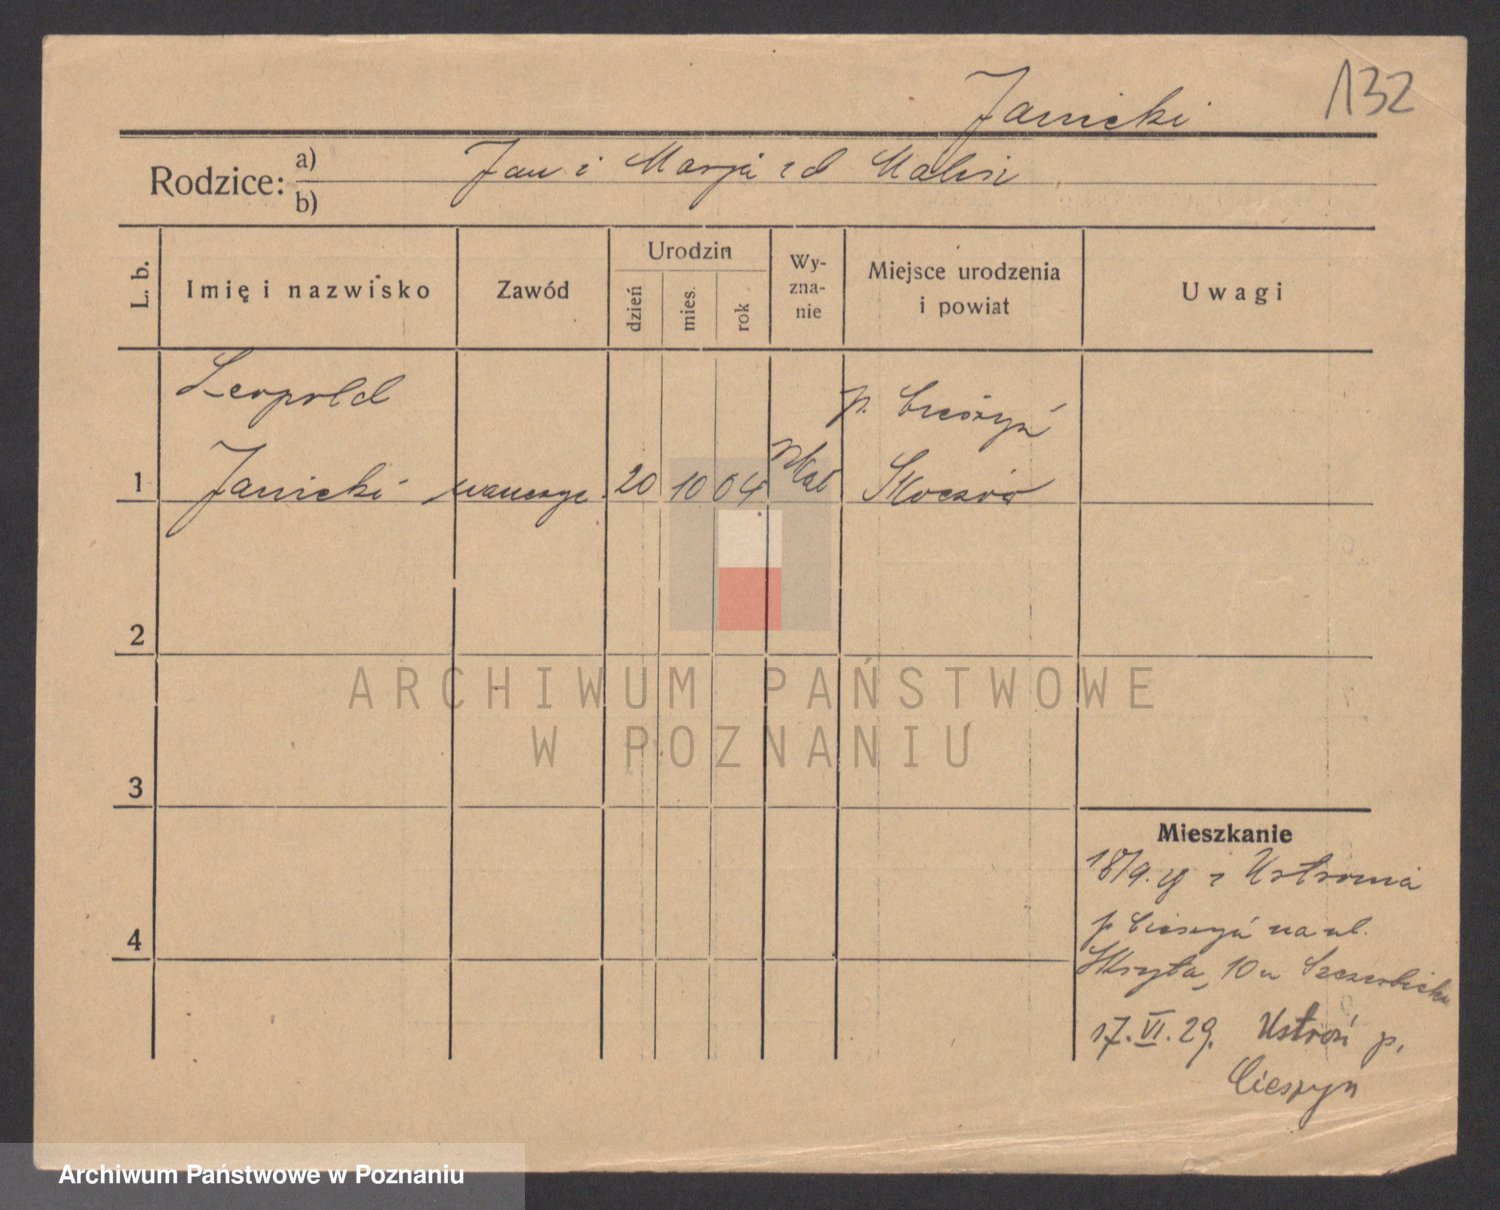 132
Janicki
Rodzice: a) Jan i Marja zd
b)
L. b.
Imię i nazwisko
Zawód
Urodzin
dzień
mies.
rok
Wy-
zna-
nie
Miejsce urodzenia
i powiat
Uwagi
Leopold p. Cieszyń
1 Janicki 20 10 04 rkat Skoczów
2
3
4
Mieszkanie
18/9. z Ustronia
p Cieszyń na ul.
Skryta 10 u
17.VI.29. Ustroń p.
Cieszyn
ARCHIWUM PAŃSTWOWE
W POZNANIU
Archiwum Państwowe w Poznaniu